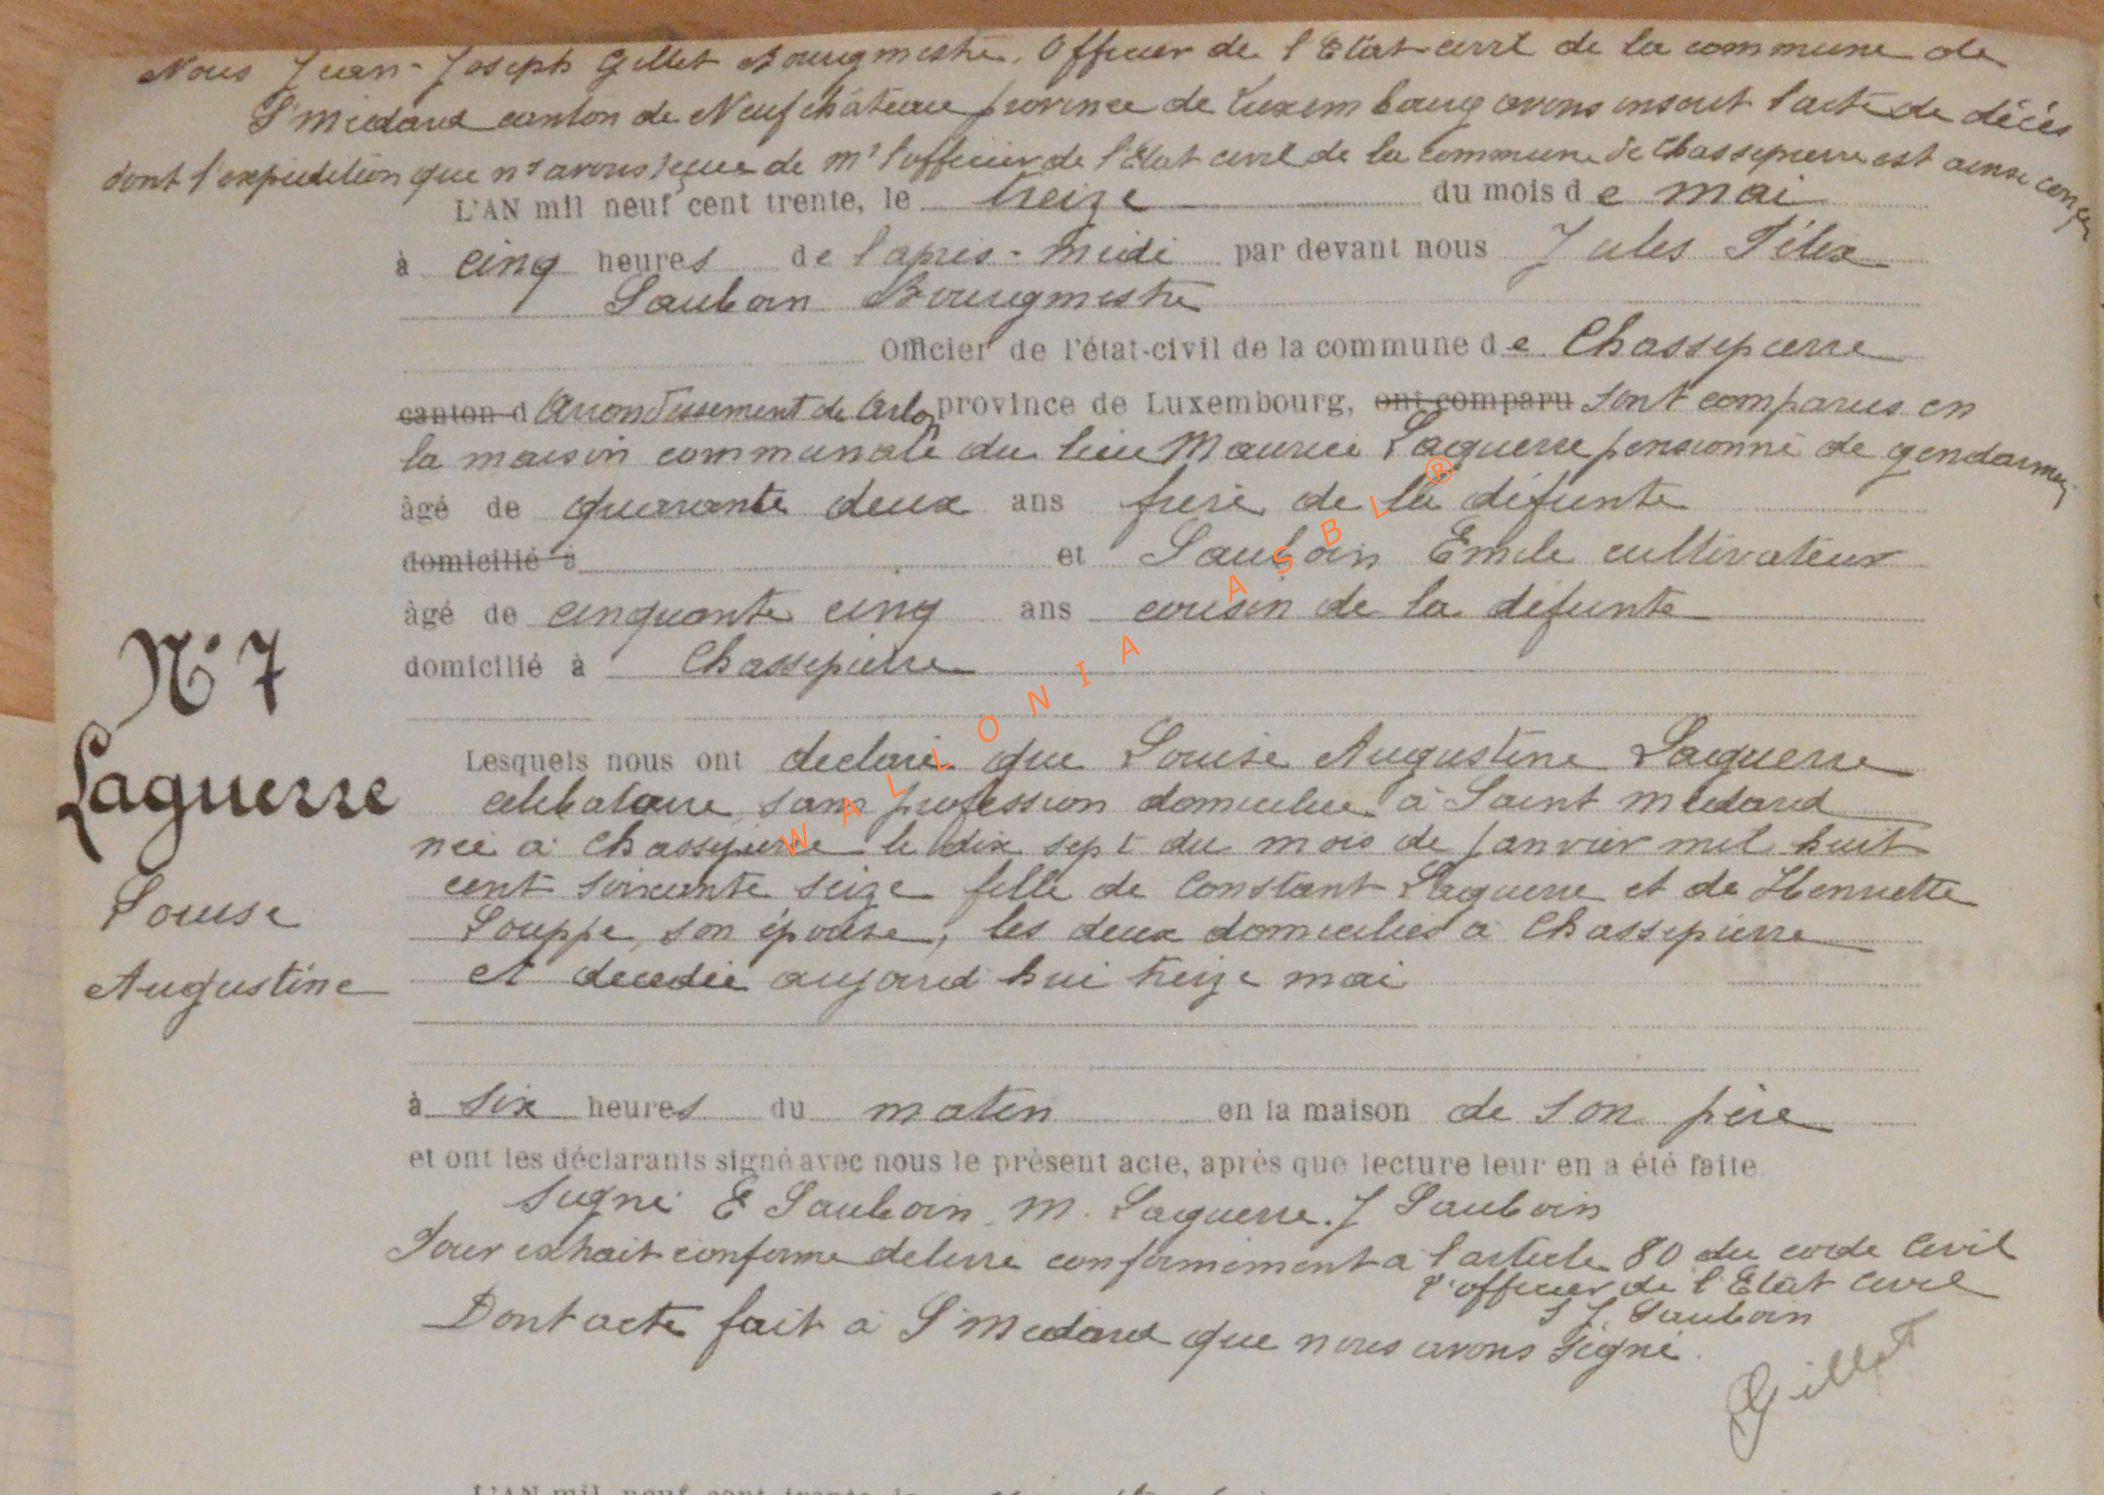 Nous Jean-Joseph Gillet Bourgmestre, Officier de l'Etat civil de la commune de
St Médard canton de Neufchâteau province de Luxembourg avons inscrit l'acte de décès
dont l'expédition que ns avons reçue de Mr l'officier de l'Etat civil de la commune de Chassepierre est ainsi conçu
L'AN mil neuf cent trente, le treize du mois de mai
à cinq heures de l'après-midi par devant nous Jules Félix
Sauboin Bourgmestre
Officier de l'état-civil de la commune de Chassepierre
canton d Arrondissement de Arlon province de Luxembourg, ont comparu sont comparus en
la maison communale du lieu Maurice Laguerre pensionné de gendarmerie
âgé de quarante deux ans frère de la défunte
domicilié à et Sauboin Emile cultivateur
âgé de cinquante cinq ans cousin de la défunte
domicilié à Chassepierre
N° 7
Laguerre
Louise
Augustine
Lesquels nous ont déclaré que Louise Augustine Laguerre
célibataire, sans profession domiciliée à Saint Médard
née à Chassepierre le dix sept du mois de janvier mil huit
cent soixante seize fille de Constant Laguerre et de Henriette
Louppe, son épouse, les deux domiciliés à Chassepierre
et décédée aujourd'hui treize mai
à six heures du matin en la maison de son père
et ont les déclarants signé avec nous le présent acte, après que lecture leur en a été faite.
Signé E Sauboin. M. Laguerre. J Sauboin
Pour extrait conforme délivré conformément à l'article 80 du code civil
l'officier de l'Etat civil
S J. Sauboin
Dont acte fait à St Médard que nous avons signé.
Gillet
WALLONIA ASBL ®
L'AN mil neuf cent trente, le